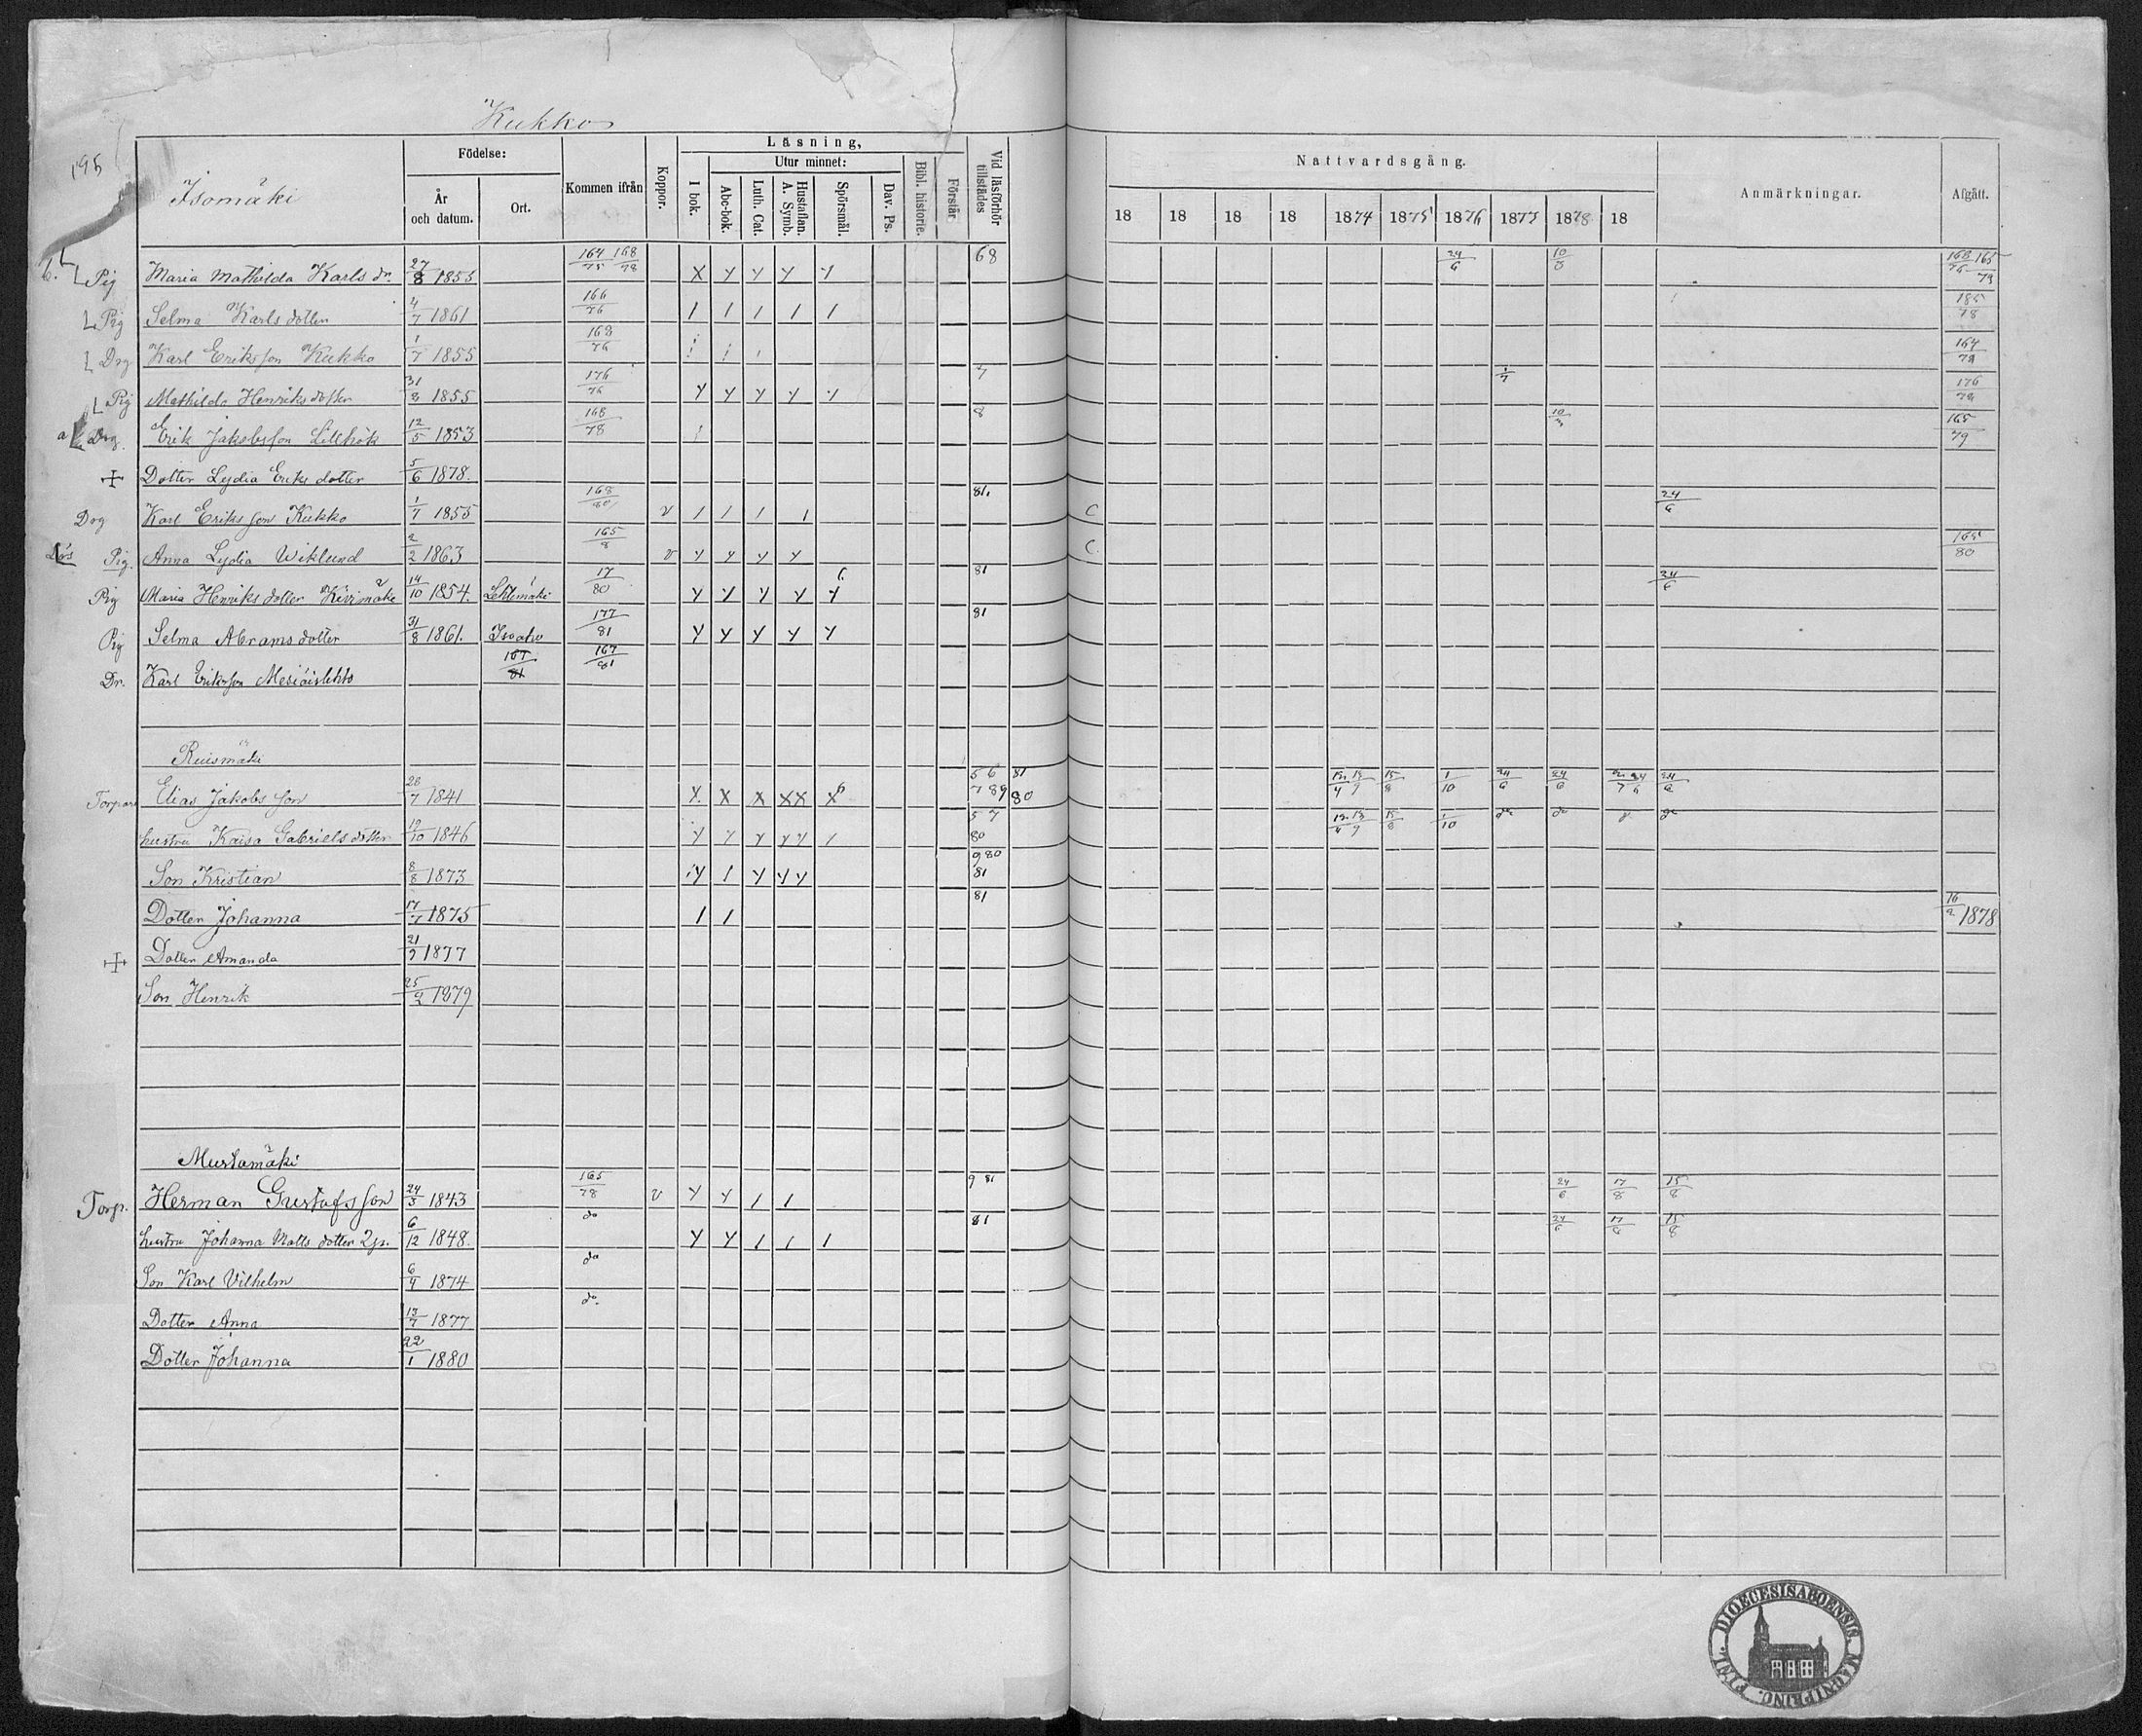 Kukko
195
Isomäki
Födelse:
År och datum.
Ort.
Kommen ifrån
Koppor.
Läsning,
I bok.
Utur minnet:
Abc-bok.
Luth. Cat.
Hustaflan. A. Symb.
Spörsmål.
Dav. Ps.
Bibl. historie.
Förstår
Vid läsförhör tillstädes
Nattvardsgång.
18 18 18 18 1874 1875 1876 1877 1878 18
Anmärkningar.
Afgått.
Pig Maria Mathilda Karls dr. 27/8 1855 164/75 168/78 X y y y y 68 24/6
Pig Selma Karls dotter 4/7 1861 166/76 185/78
Drg Karl Eriksson Kukko 1/7 1855 168/76 164/78
Pig Mathilda Henriksdotter 31/8 1855 176/76 y y y y y 7 1/7 176/78
Drg. Erik Jakobsson Lillhök 12/5 1853 168/78 8 165/79
Dotter Lydia Eriks dotter 5/6 1878.
Drg Karl Eriksson Kukko 1/7 1855 168/80 v 81. C 24/6
Pig. Anna Lydia Wiklund 2/2 1863 165/8 v y y y y C. 165/80
Pig Maria Henriks dotter Kivimäki 14/10 1854. Lehtimäki 17/80 y y y y y 81 24/6
Pig Selma Abrams dotter 31/8 1861. Isoaho 177/81 y y y y y 81
Dr. Karl Eriksson 167/81 167/81
Ruismäki
Torpare Elias Jakobsson 28/7 1841 X X X XX X 5 6 81 7 89 80 15/8 1/10 24/6 24/6 24/6
hustru Kaisa Gabrielsdotter 19/10 1846 y y y y y 5 7 80 15/8 1/10 do do do
Son Kristian 8/8 1873 y y y y 9 80 81
Dotter Johanna 17/7 1875 81
Dotter Amanda 21/9 1877 16/2 1878
Son Henrik 25/2 1879
Mustamäki
Torp. Herman Gustafsson 24/5 1843 165/78 v y y 9 81 24/6 17/8 15/8
hustru Johanna Matts dotter 2 gr. 6/12 1848. do y y 81 24/6 15/8
Son Karl Vilhelm 6/4 1874 do
Dotter Anna 13/7 1877 do.
Dotter Johanna 22/1 1880
DIOECESIS ABOENSIS MAGNI PRINC. FINL.